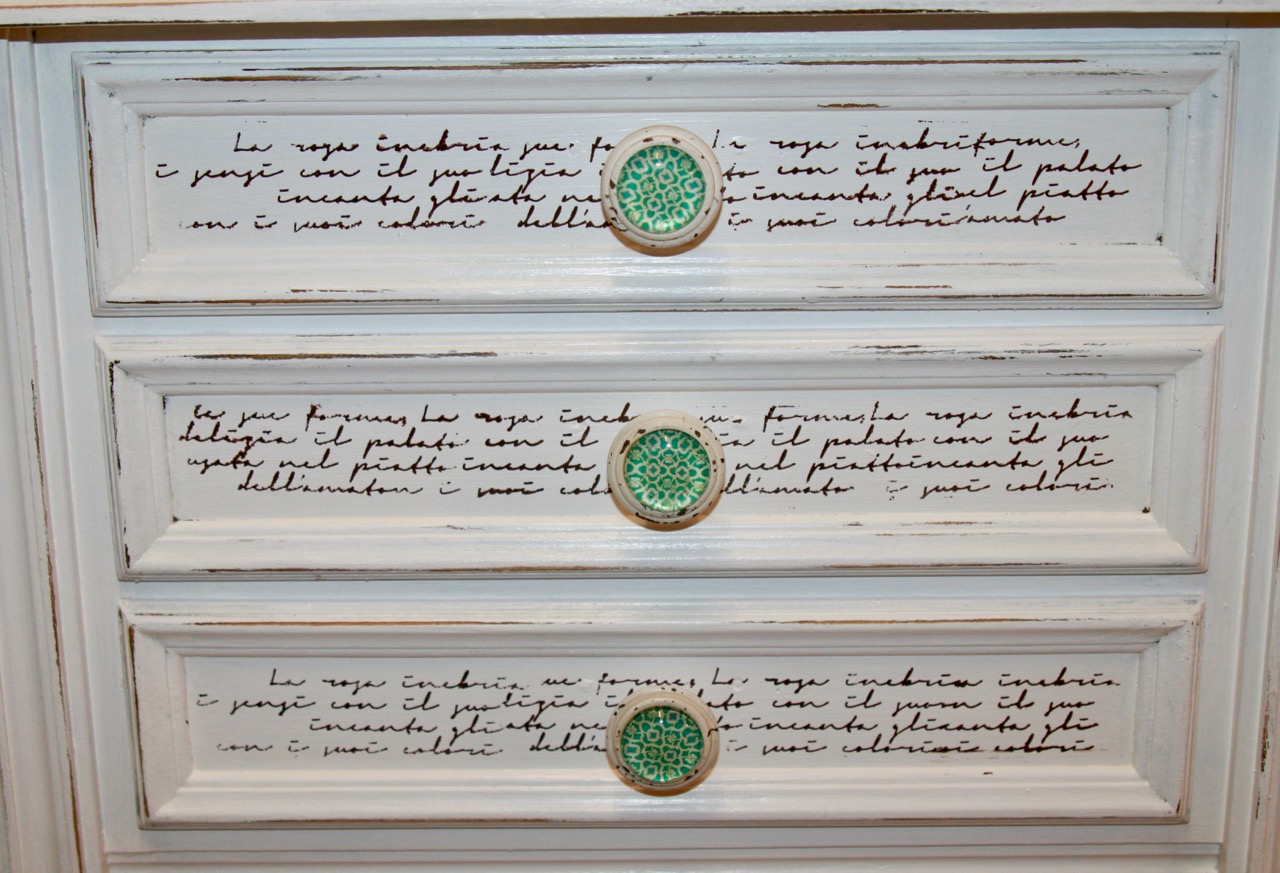 La roga inebria que fo La roga inebriforme,
i gengi con il guoligia con il guo il palato
incanta gliata ne incanta gliel piatto
con i guoi colori dell'a i guoi coloriamato
que forme, La roga ineb forme, La roga inebria
deligia il palato con il ia il palato con il guo
ugata nel piatto incanta nel piattoincanta gli
dell'amaton i guoi colo ll'amato i guoi colori
La roga inebria ue forme, La roga inebria inebria
i gengi con il guoligia il con il guo il guo
incanta gliata ne incanta glicanta gli
con i guoi colori dell'a i guoi colori colori